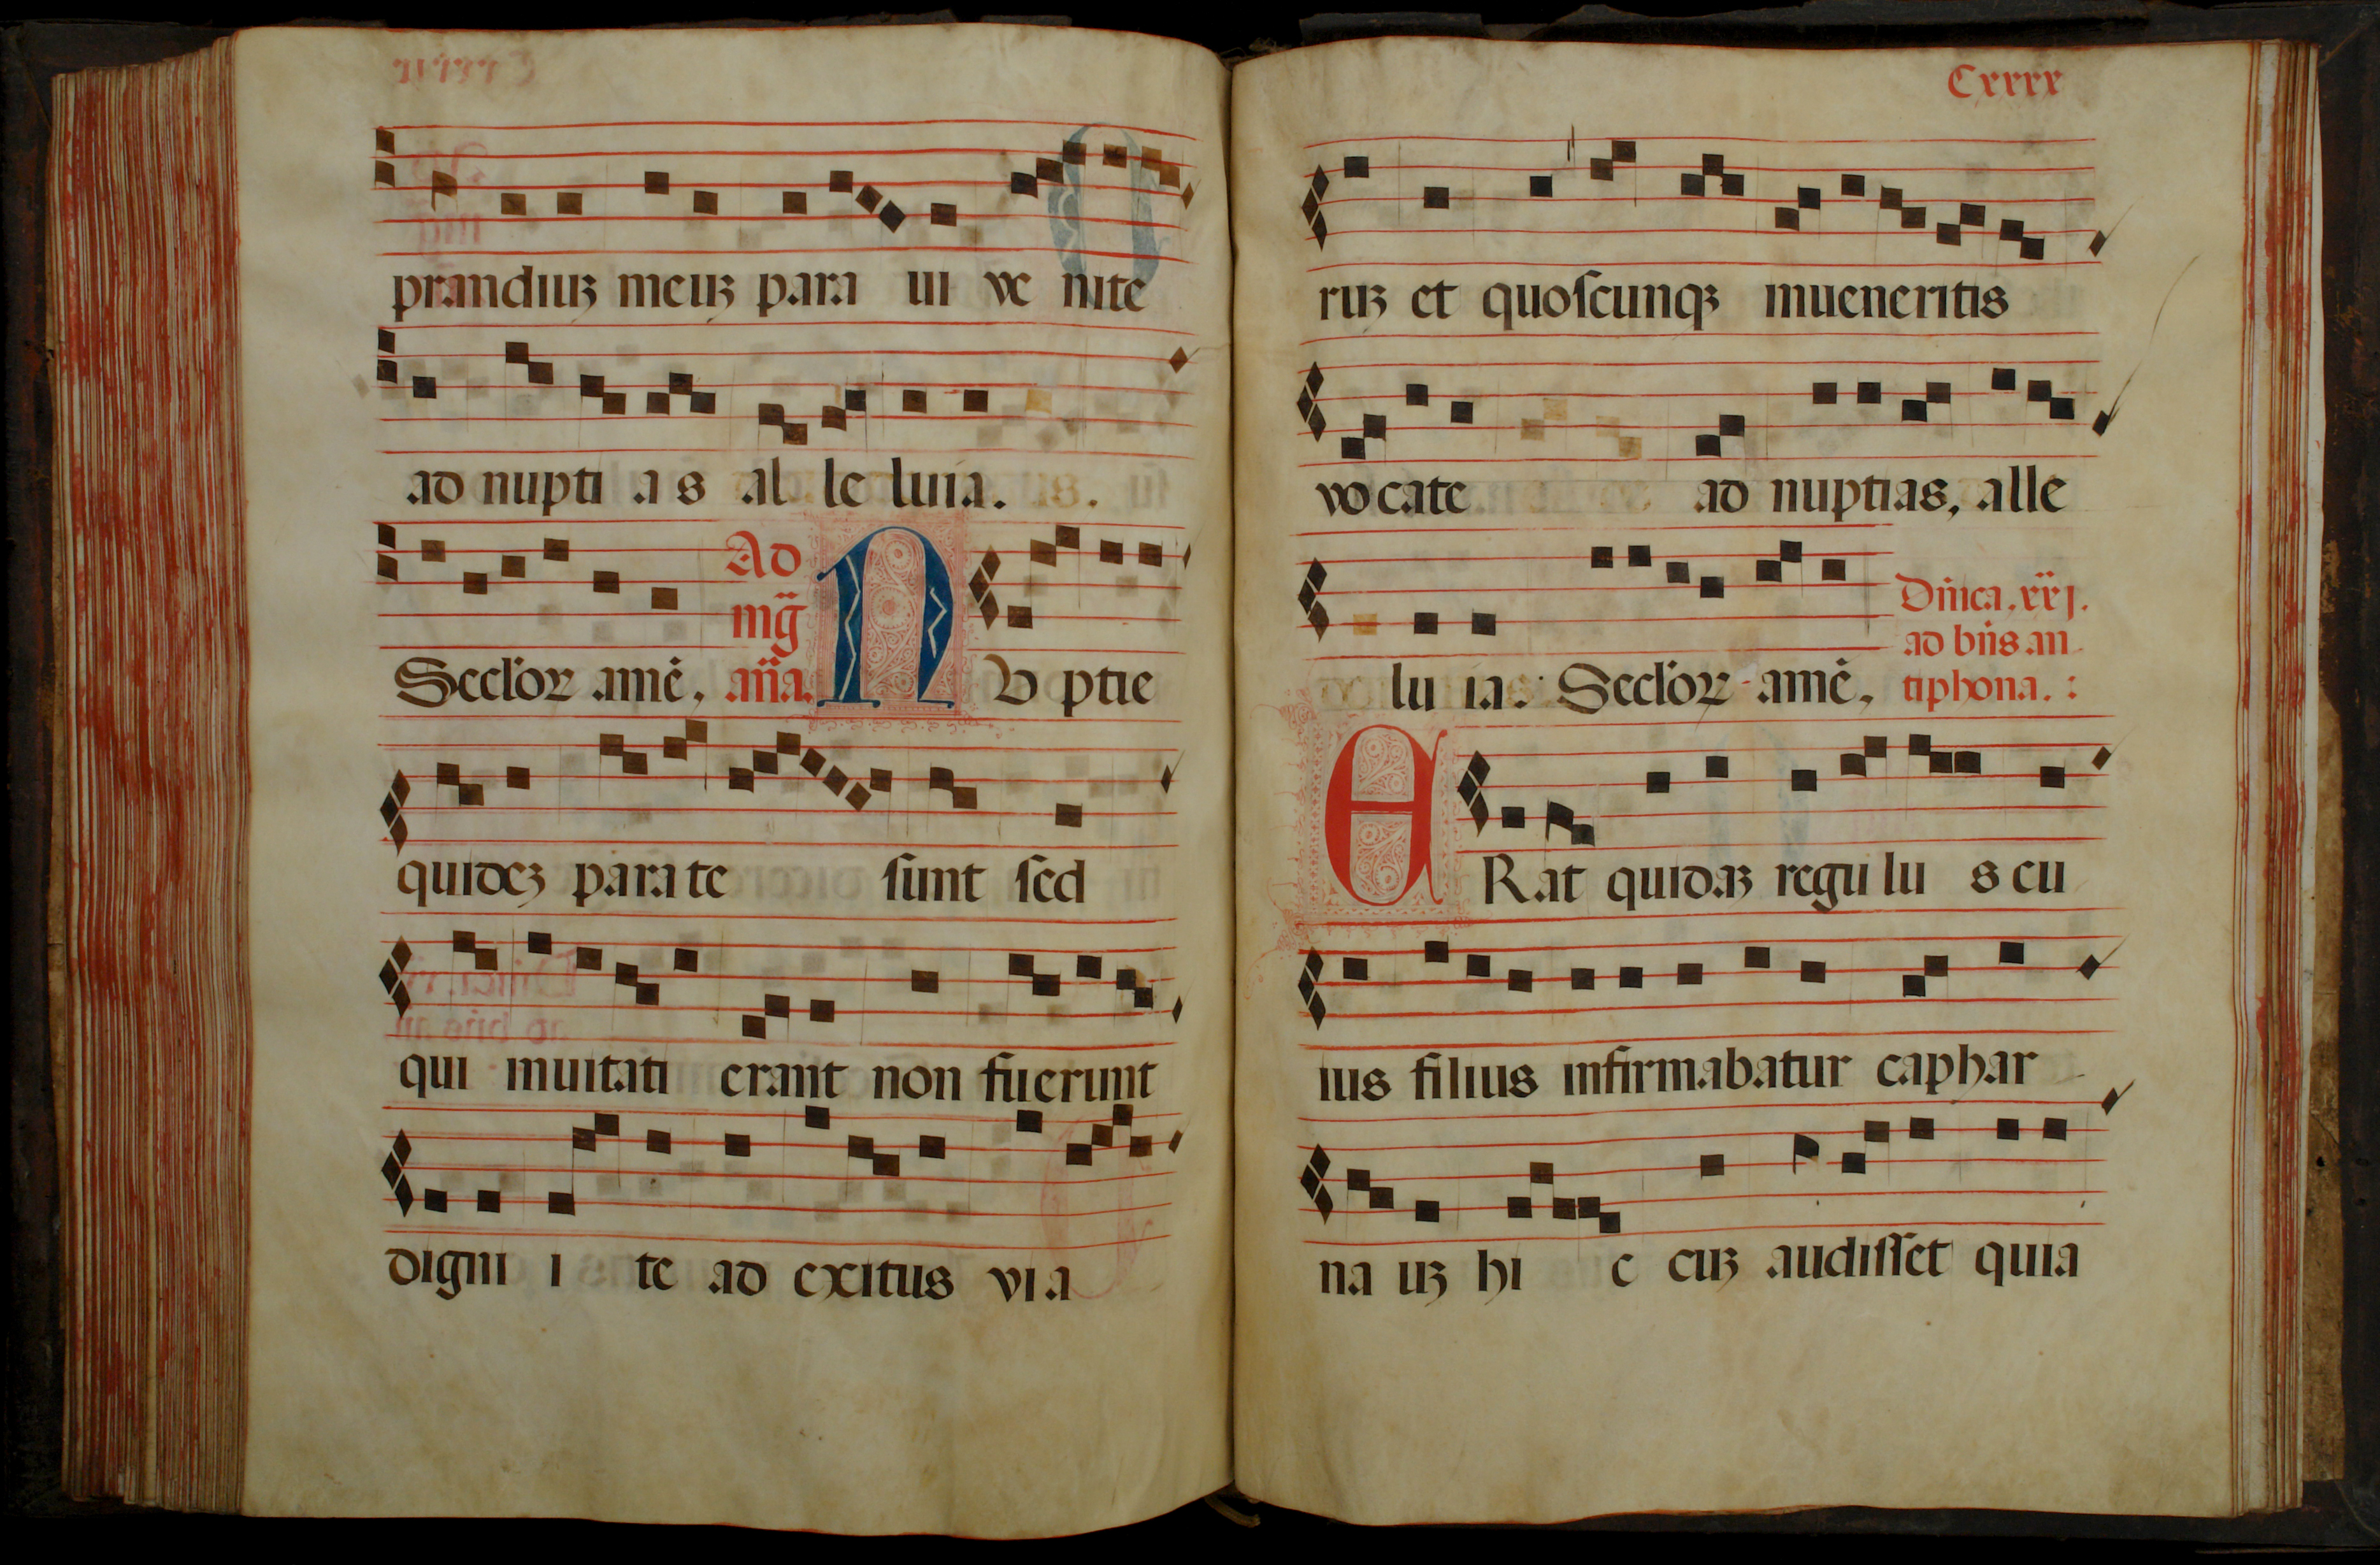 prandiuz meuz para ui ve nite
ad nupti a s al le luia.
Ad
mg̃
Seclor̃ amē, aña. N U ptie
quidez parate sunt sed
qui inuitati erant non fuerunt
digni i te ad exitus via
Cxxxx
ruz et quoscunqz inueneritis
vocate ad nuptias, alle
lu ia: Seclor̃ amē,
Dñica, xxj.
ad bñs an
tiphona. :
E Rat quidaz regulu s cu
ius filius infirmabatur caphar
na uz hi c cuz audisset quia